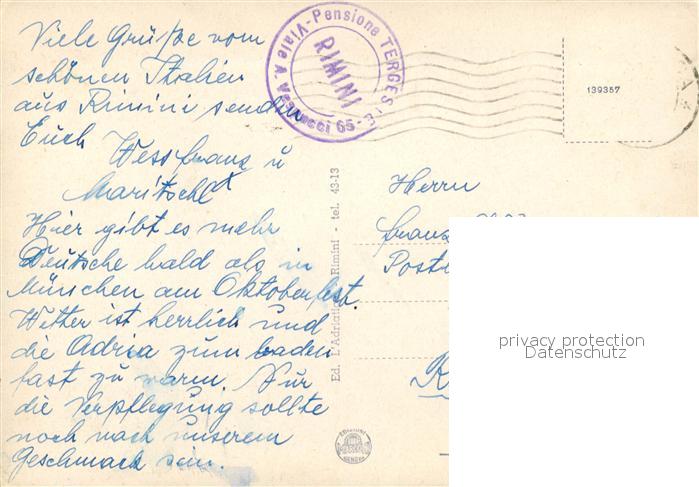 Viele Grüße vom
schönen Italien
aus Rimini senden
Euch
Franz u
Hier gibt es mehr
Deutsche bald als in
München am Oktoberfest.
Wetter ist herrlich und
die Adria zum baden
fast zu warm. Nur
die Verpflegung sollte
noch nach unserem
Geschmack sein.
Pensione TERGESTE
Viale A. Vespucci 65-
RIMINI
139357
Ed. Rimini - tel. 43-13
Herrn
Franz
privacy protection
Datenschutz